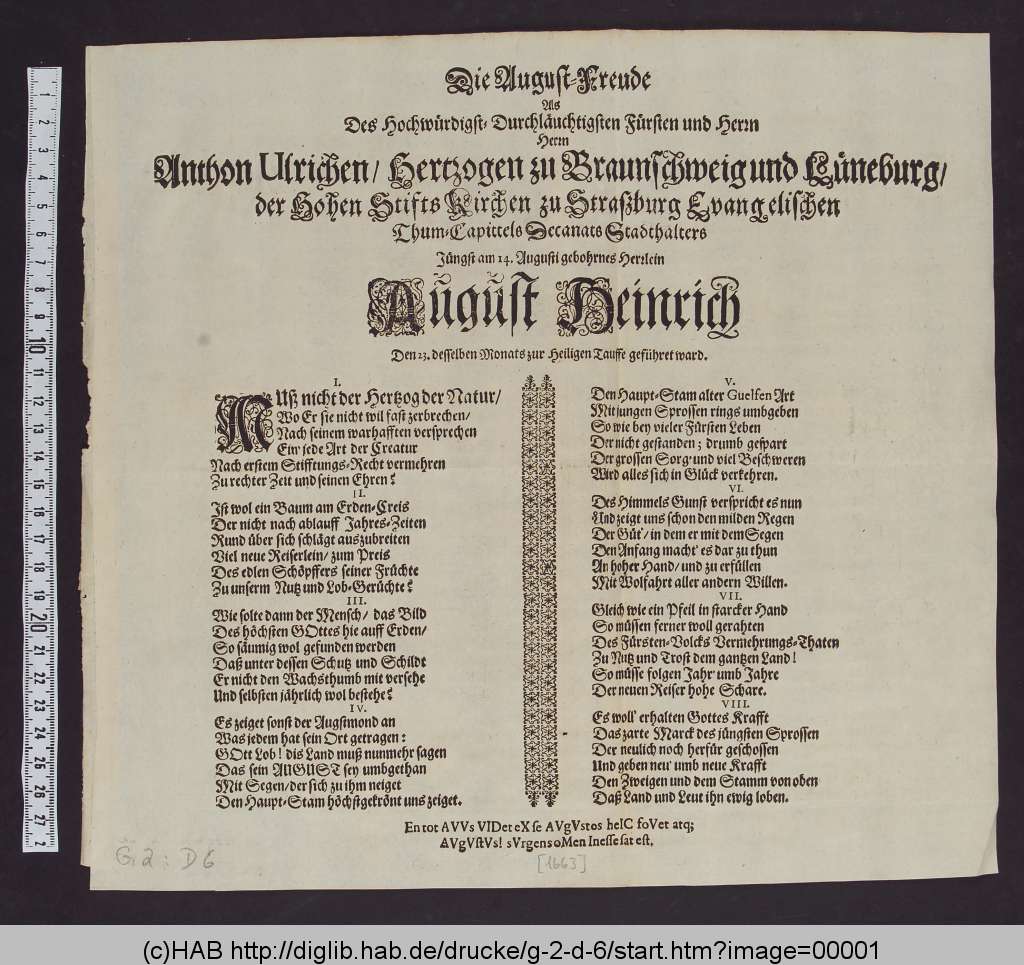 Die August-Freude
Als
Des Hochwürdigst-Durchläuchtigsten Fürsten und Herrn
Herrn
Anthon Ulrichen/ Hertzogen zu Braunschweig und Lüneburg/
der Hohen Stifts Kirchen zu Straßburg Evangelischen
Thum-Capittels Decanats Stadthalters
Jüngst am 14. Augusti gebohrnes Herrlein
August Heinrich
Den 23. desselben Monats zur Heiligen Tauffe geführet ward.
I.
MUß nicht der Hertzog der Natur/
Wo Er sie nicht wil fast zerbrechen/
Nach seinem warhafften versprechen
Ein' jede Art der Creatur
Nach erstem Stifftungs-Recht vermehren
Zu rechter Zeit und seinen Ehren?
II.
Ist wol ein Baum am Erden-Creis
Der nicht nach ablauff Jahres-Zeiten
Rund über sich schlägt auszubreiten
Viel neue Reiserlein/ zum Preis
Des edlen Schöpffers seiner Früchte
Zu unserm Nutz und Lob-Gerüchte?
III.
Wie solte dann der Mensch/ das Bild
Des höchsten GOttes hie auff Erden/
So säumig wol gefunden werden
Daß unter dessen Schutz und Schild
Er nicht den Wachsthumb mit versehe
Und selbsten jährlich wol bestehe?
IV.
Es zeiget sonst der Augstmond an
Was jedem hat sein Ort getragen:
GOtt Lob! dis Land muß nunmehr sagen
Das sein AUGUST sey umbgethan
Mit Segen/ der sich zu ihm neiget
Den Haupt-Stam höchstgekrönt uns zeiget.
V.
Den Haupt-Stam alter Guelfen Art
Mit jungen Sprossen rings umbgeben
So wie bey vieler Fürsten Leben
Der nicht gestanden; drumb gespart
Der grossen Sorg' und viel Beschweren
Wird alles sich in Glück verkehren.
VI.
Des Himmels Gunst verspricht es nun
Und zeigt uns schon den milden Regen
Der Güt'/ in dem er mit dem Segen
Den Anfang macht' es dar zu thun
An hoher Hand/ und zu erfüllen
Mit Wolfahrt aller andern Willen.
VII.
Gleich wie ein Pfeil in starcker Hand
So müssen ferner woll gerahten
Des Fürsten-Volcks Vermehrungs-Thaten
Zu Nutz und Trost dem gantzen Land!
So müsse folgen Jahr' umb Jahre
Der neuen Reiser hohe Schare.
VIII.
Es woll' erhalten Gottes Krafft
Das zarte Marck des jüngsten Sprossen
Der neulich noch herfür geschossen
Und geben neu' umb neue Krafft
Den Zweigen und dem Stamm von oben
Daß Land und Leut ihn ewig loben.
En tot AVVs VIDet eX se AVgVstos heIC foVet atq;
AVgVstVs! sVrgens oMen Inesse sat est.
G. 2: D 6
[1663]
1
2
3
4
5
6
7
8
9
10
11
12
13
14
15
16
17
18
19
20
21
22
23
24
25
26
27
2
(c)HAB http://diglib.hab.de/drucke/g-2-d-6/start.htm?image=00001